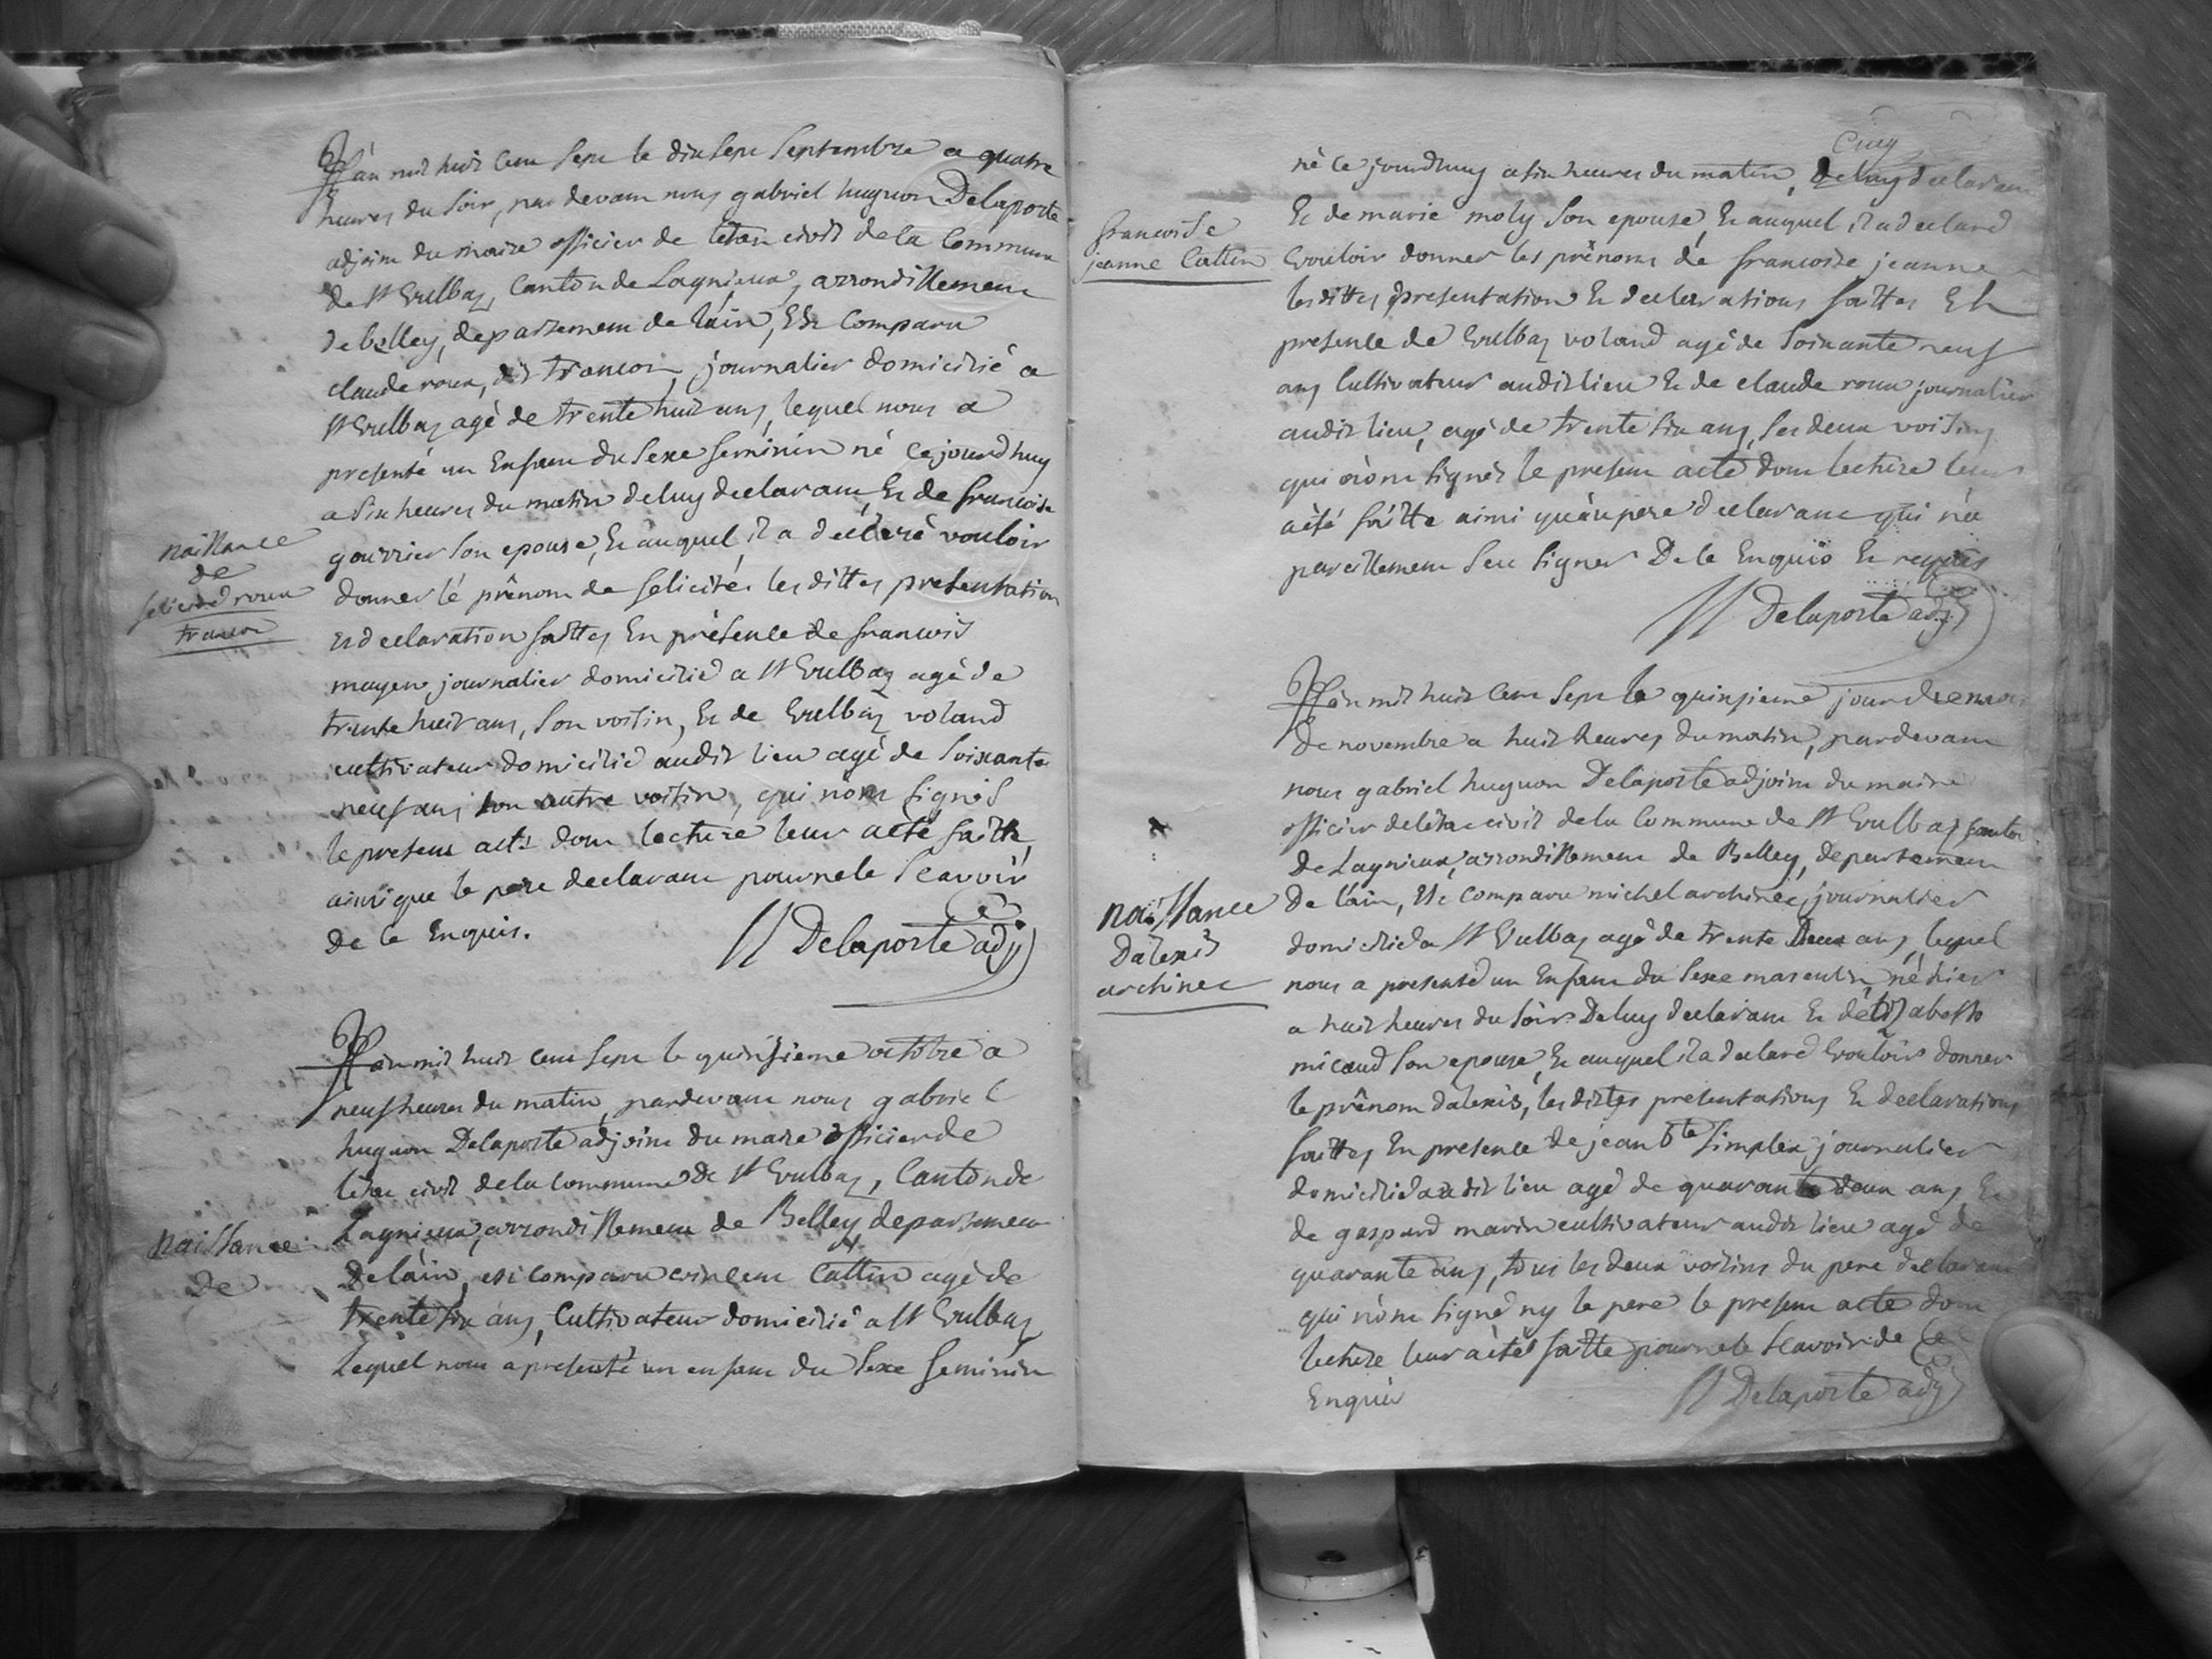 L'an mil huit cent sept le dix sept Septembre a quatre
heures du soir, par devant nous gabriel huguon Delaporte
adjoint du maire officier de letat civil de la Commune
de St Vulbaz, Canton de Lagnieux, arrondissement
de belley, departement de l'ain, Est Comparu
claude roux, dit francon, journalier domicilié a
St Vulbaz agé de trente huit ans, lequel nous a
presenté un Enfant du Sexe feminin né Cejourdhuy
a six heures du matin deluy declarant, Et de francoise
gourrier son epouse, Et auquel il a declaré vouloir
donner lé prénom de felicité, les dittes presentation
Et declaration faittes En présence de francois
moyen journalier domicilié a St Vulbaz agé de
trente huit ans, son voisin, Et de Vulbaz voland
cultivateur domicilié audit lieu agé de Soixante
neuf ans son autre voisin, qui n'ont signés
le present acte dont lecture leur aeté faitte,
ainsi que le pere declarant pour ne le Scavoir
de ce Enquis.
Delaporte adj
naissance
de
felicité roux
francon
L'an mil huit cent sept le quinsieme octobre a
neuf heures du matin, pardevant nous gabriel
huguon Delaporte adjoint du maire officier de
létat civil dela Commune de St Vulbaz, Canton de
Lagnieux, arrondissement de Belley, departement
De l'ain, est comparu vincent Cattin agé de
trente six ans, Cultivateur domicilié a St Vulbaz
Lequel nous a presenté un enfant du Sexe feminin
naissance
de
Cinq
né ce jourdhuy a six heures du matin, deluy declarant
Et de marie moly son epouse, Et auquel il a declaré
Vouloir donner les prénoms de francoise jeanne
lesdittes presentation Et declarations faittes En
presence de Vulbaz voland agé de Soixante neuf
ans Cultivateur audit lieu Et de claude roux journalier
audit lieu, agé de trente six ans, ses deux voisins
qui n'ont signés le present acte dont lecture leur
aété faitte ainsi qu'au pere declarant qui n'a
pareillement Seu signer De ce Enquis Et requis
Delaporte adj
francoise
jeanne Cattin
L'an mil huit Cent Sept le quinsieme jour du mois
de novembre a huit heures du matin, pardevant
nous gabriel huguon Delaporte adjoint du maire
officier delétat civil dela Commune de St Vulbaz Canton
de Lagnieux, arrondissement de Belley, departement
de l'ain, Est comparu michel archinec, journalier
domicilié a St Vulbaz agé de trente Deux ans, lequel
nous a presenté un Enfant du Sexe masculin, né hier
a huit heures du soir Deluy declarant Et délizabeth
micaud son epouse, Et auquel il a declaré Vouloir donner
le prénom dalexis, les dittes presentations Et declarations
faittes En presence de jean bte Simplex journalier
domicilié audit lieu agé de quarante deux ans Et
de gaspard marin cultivateur audit lieu agé de
quarante ans, tous les deux voisins du pere declarant
qui n'ont signé ny le pere le present acte dont
lecture leur aété faitte pour ne le Scavoir de Ce
Enquis
Delaporte adj
naissance
dalexis
archinec